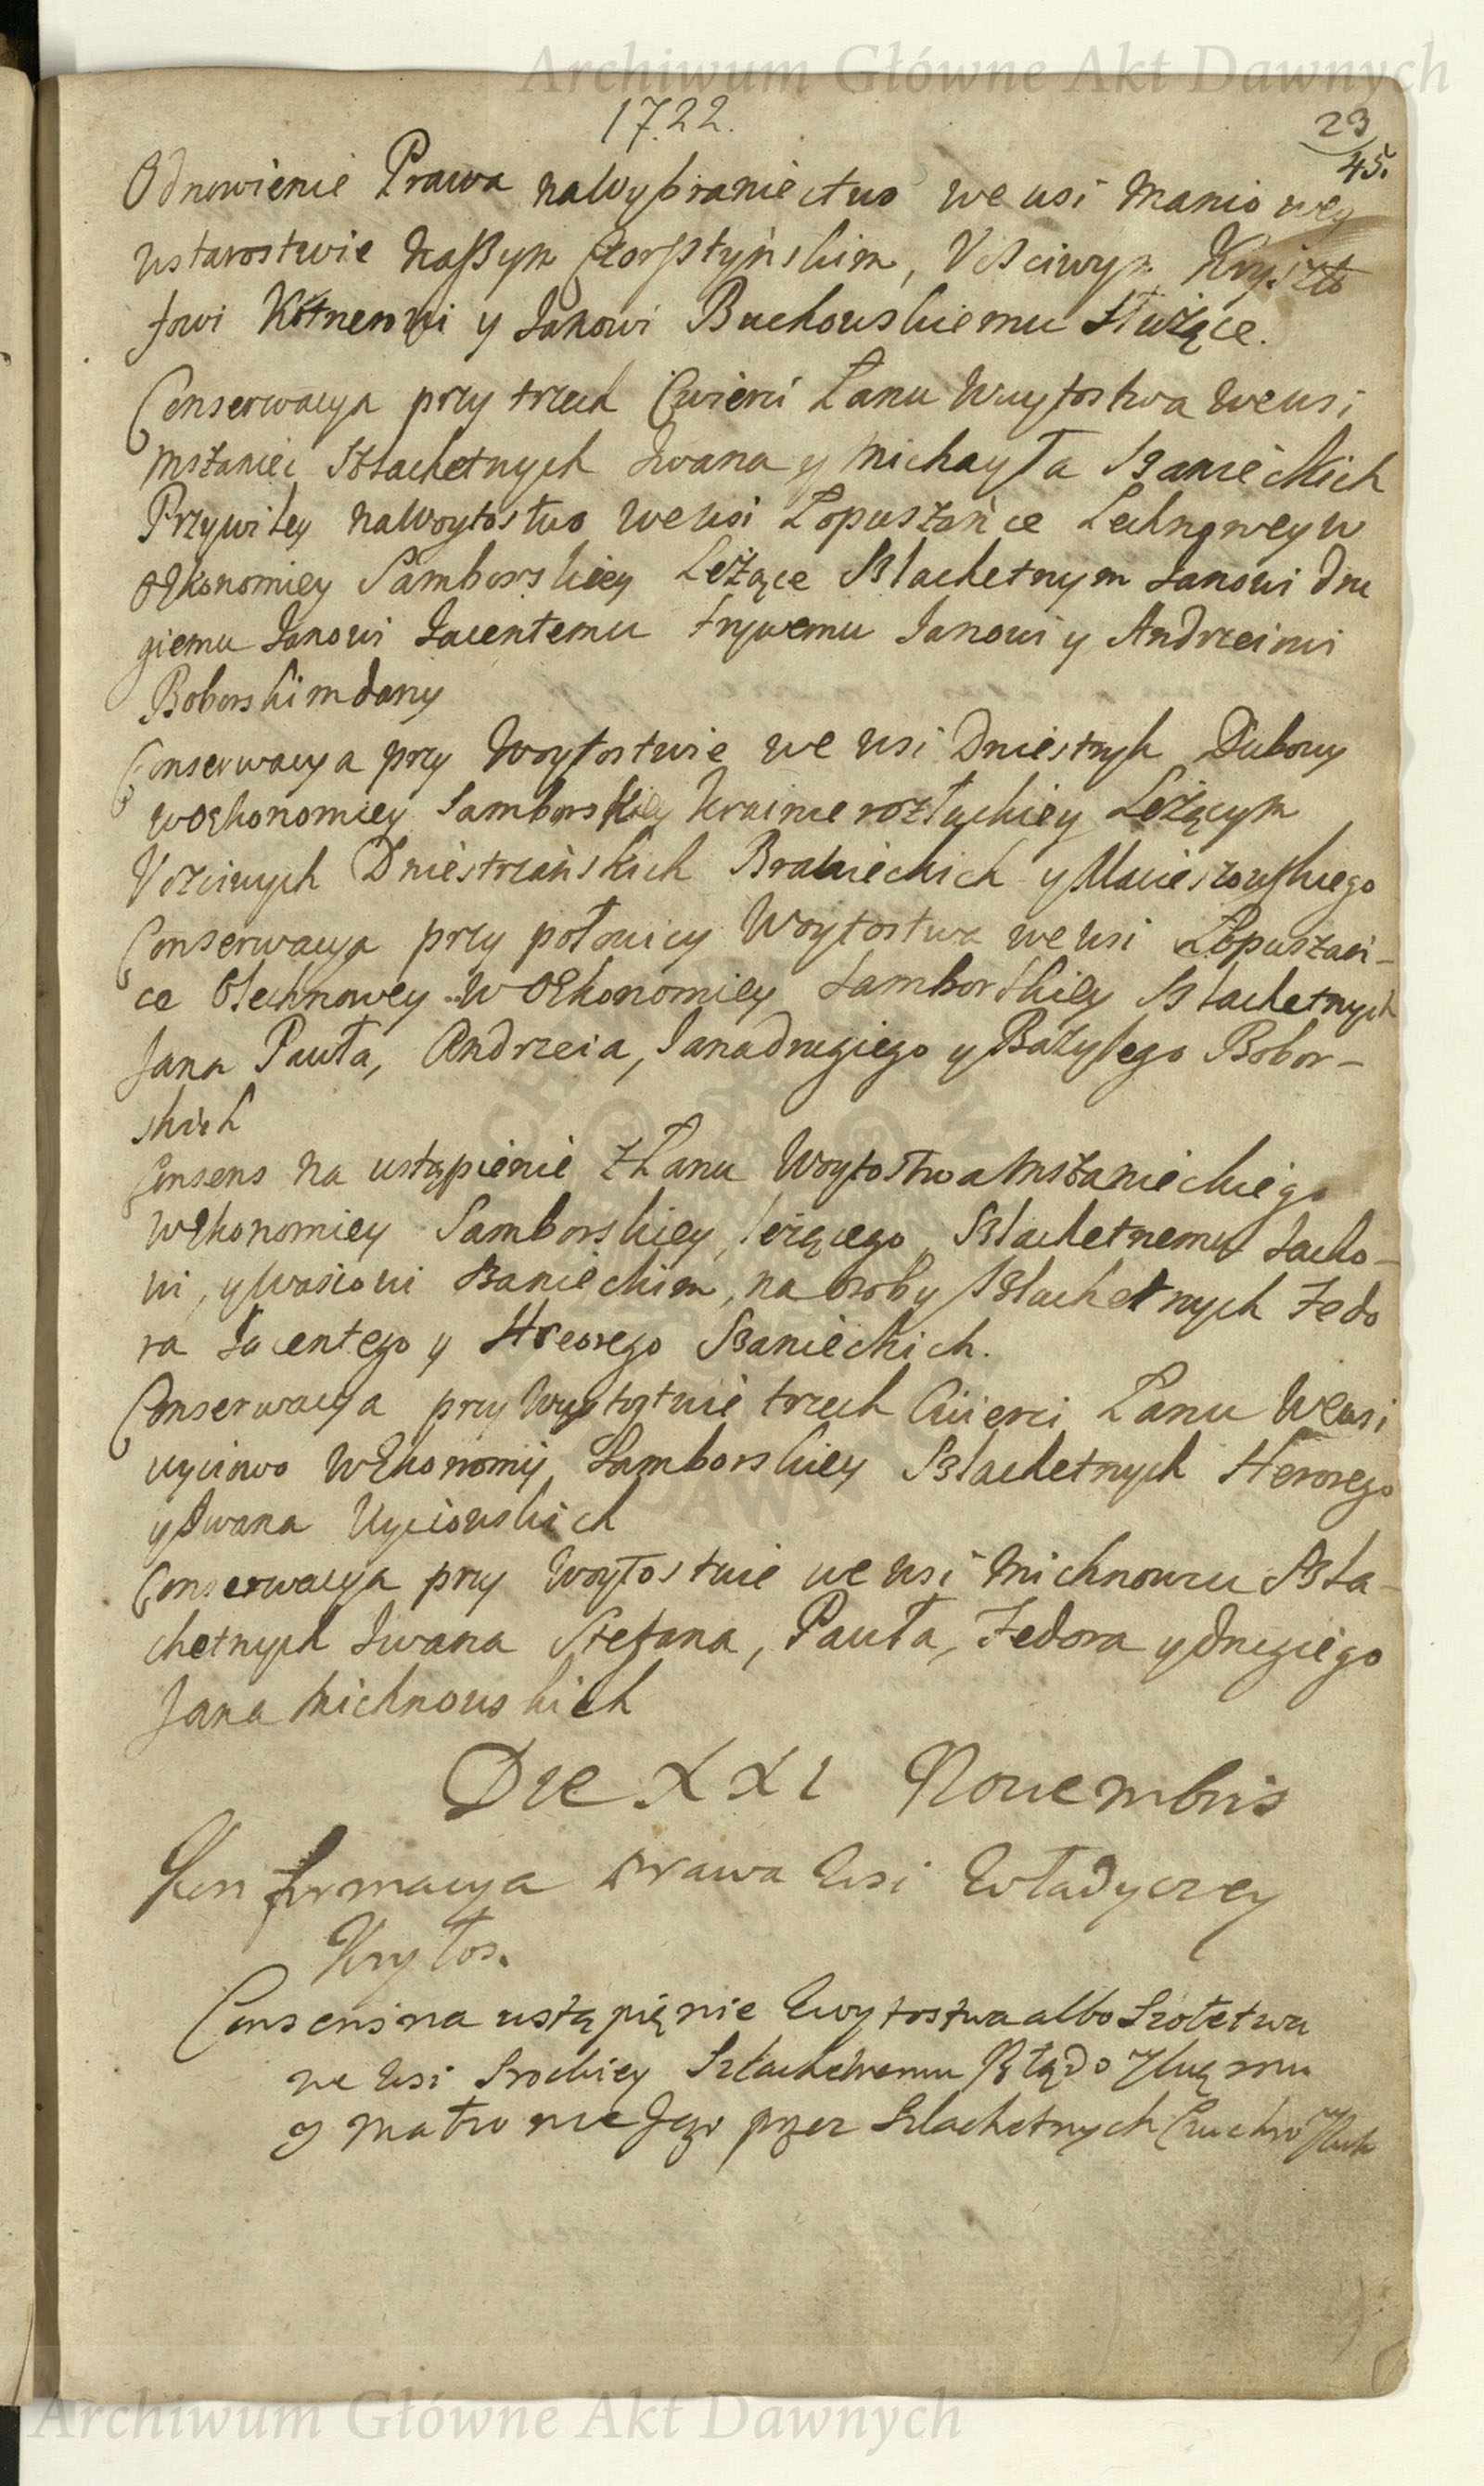 Archiwum Główne Akt Dawnych
1722.
23
45.
Odnowienie Prawa na Wybraniectwo we wsi Maniowey
w starostwie naszym Czorsztyńskim, Ucściwym Kryszto
fowi Kitnerowi y Janowi Buchowskiemu służące.
Conserwacya przy trzech Cwierci Łanu Wuytostwa we wsi
Mszaniec Szlachetnych Iwana y Michayła Banieckich
Przywiley na Woytostwo we wsi Łopuszańce Lechnowey w
Oekonomiey Samborskiey Leżące Szlachetnym Janowi dru
giemu Janowi Jacentemu trzywemu Janowi y Andrzeiowi
Boberskim dany
Conserwacya przy Woytostwie we wsi Dniestrzyk Dubowy
w Oekonomiey Samborskiey Krainie roztuckiey Leżącym
Uczciwych Dniestrzańskich Branieckich y Macieszowskiego
Conserwacya przy połowicy Woytostwa we wsi Łopuszań-
ce Olechnowey w Oekonomiey Samborskiey Szlachetnych
Jana Pawła, Andrzeia, Jana drugiego y Bazylego Bobor-
skich
Consens na ustąpienie z Łanu Woytostwa Mszanieckiego
w Ekonomiey Samborskiey leżącego Szlachetnemu Jacko-
wi, y Wasiowi Banieckim, na osoby Szlachetnych Fedo
ra Jacentego y Hreorego Banieckich.
Conserwacya przy Wuytostwie trzech Cwierci Łanu we wsi
Uyciowo w Ekonomij Samborskiey Szlachetnych Herorego
y Iwana Uyciowskich
Conserwacya przy Woytostwie we wsi Michnowcu Szla-
chetnych Iwana Stefana, Pawła, Fedora y drugiego
Jana Michnowskich
Die XXI Nouembris
Konfirmacya prawa wsi Władyczey
Kryłos.
Consens na ustąpięnie Woytostwa albo Szołetwa
we wsi Szlachetnemu
y Małżonce Jego przez Szlachetnych
Archiwum Główne Akt Dawnych